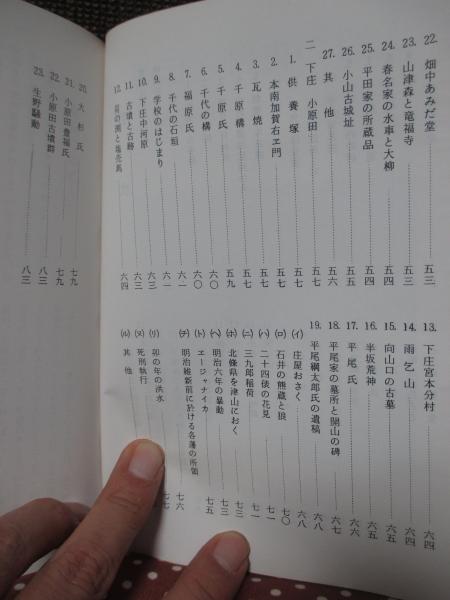 22. 畑中あみだ堂……五三
23. 山津森と竜福寺……五三
24. 春名家の水車と大柳……五四
25. 平田家の所蔵品……五四
26. 小山古城址……五六
27. 其他……五七
二 下庄 小原田……五七
1. 供養塚……五七
2. 本南加賀右ヱ門……五七
3. 瓦焼……五七
4. 千原構……五九
5. 千原氏……六〇
6. 千代の構……六〇
7. 福原氏……六一
8. 千代の石垣……六一
9. 学校のはじまり……六三
10. 下庄中河原……六三
11. 古墳と古跡……六四
13. 下庄宮本分村……六四
14. 雨乞山……六四
15. 向山口の古墓……六五
16. 半坂荒神……六五
17. 平尾氏……六六
18. 平尾家の墓所と開山の碑……六七
19. 平尾綱太郎氏の遺稿……六八
(イ) 庄屋おさく……六八
(ロ) 石井の熊蔵と狼……七〇
(ハ) 二十四俵の花見……七一
(ニ) 三九郎稲荷……七一
(ホ) 北條県を津山におく……七二
(ヘ) 明治六年の暴動
(ト) エージャナイカ……七五
(チ) 明治維新前に於ける各藩の所領……七六
(リ) 卯の年の洪水……七七
(ヌ) 死刑執行
(ル) 其他
20. 大杉氏……七九
21. 小原田豊福氏……七九
22. 小原田古墳群……八三
23. 生野騒動……八三